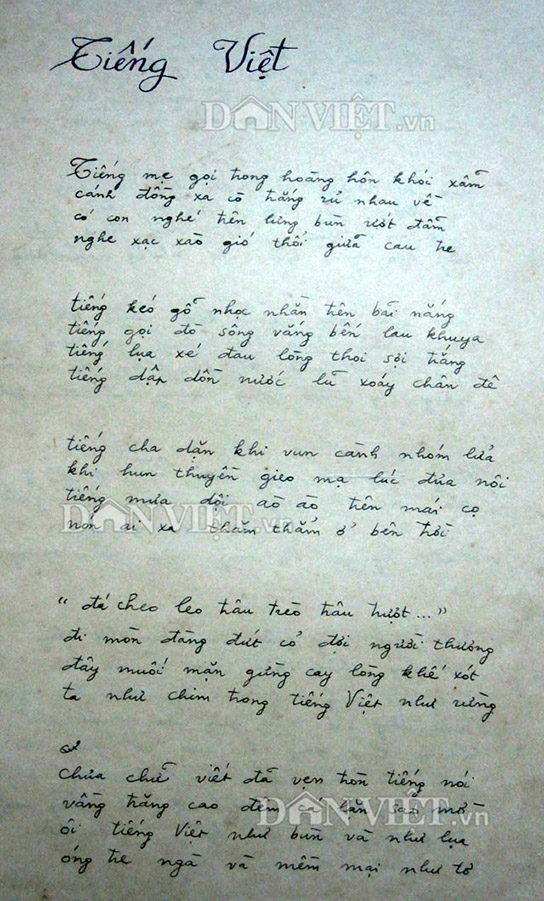 Tiếng Việt
DÂNVIỆT.vn
Tiếng mẹ gọi trong hoàng hôn khói xẫm
cánh đồng xa cò trắng rủ nhau về
có con nghé trên lưng bùn ướt đẫm
nghe xạc xào gió thổi giữa cau tre
tiếng kéo gỗ nhọc nhằn trên bãi nắng
tiếng gọi đò sông vắng bến lau khuya
tiếng lụa xé đau lòng thoi sợi trắng
tiếng dập dồn nước lũ xoáy chân đê
tiếng cha dặn khi vun cành nhóm lửa
khi hun thuyền gieo mạ lúc đưa nôi
tiếng mưa dội ào ào trên mái cọ
nón ai xa thăm thẳm ở bên trời
DÂNVIỆT.vn
“ đá cheo leo trâu trèo trâu trượt ... ”
đi mòn đàng đứt cỏ đợi người thương
đây muối mặn gừng cay lòng khế xót
ta như chim trong tiếng Việt như rừng
chưa chữ viết đã vẹn tròn tiếng nói
vầng trăng cao đêm cá lặn sao mờ
ôi tiếng Việt như bùn và như lụa
óng tre ngà và mềm mại như tơ
DÂNVIỆT.vn